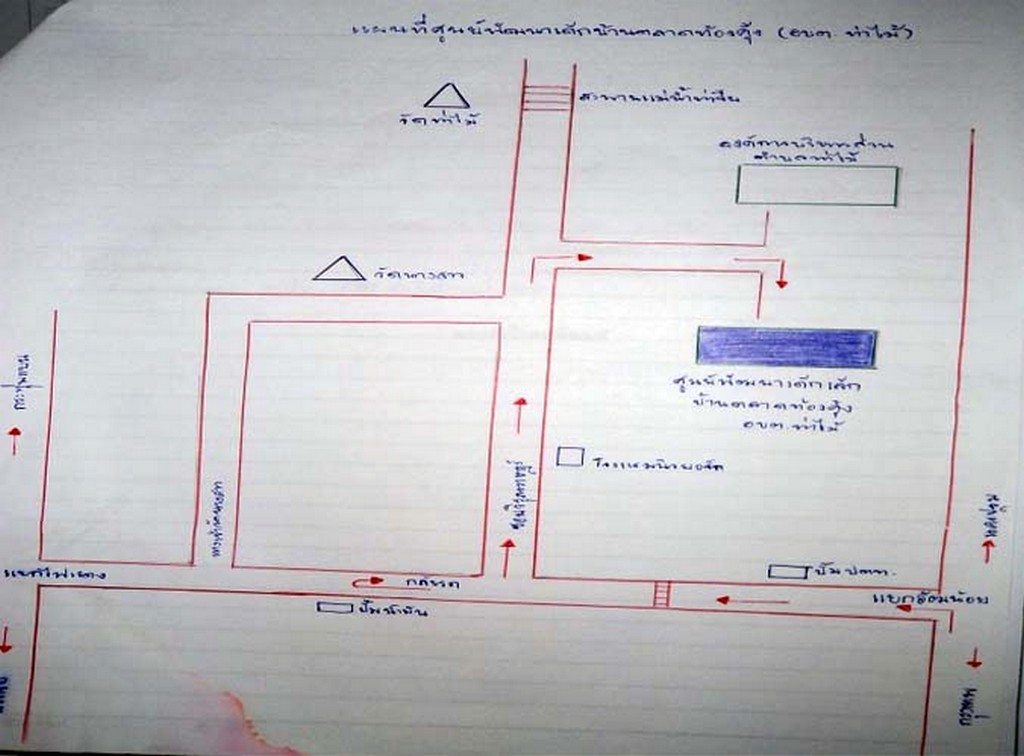 แผนที่ศูนย์พัฒนาเด็กบ้านตลาดท้องคุ้ง (อบต. ท่าไม้)
สะพานแม่น้ำท่าจีน
วัดท่าไม้
องค์การบริหารส่วน
ตำบลท่าไม้
วัดนางสาว
ศูนย์พัฒนาเด็กเล็ก
บ้านตลาดท้องคุ้ง
อบต. ท่าไม้
กระทุ่มแบน
ทางเข้าวัดนางสาว
แยกไฟแดง
กลับรถ
ปั๊มน้ำมัน
ปั๊ม ปตท.
แยกอ้อมน้อย